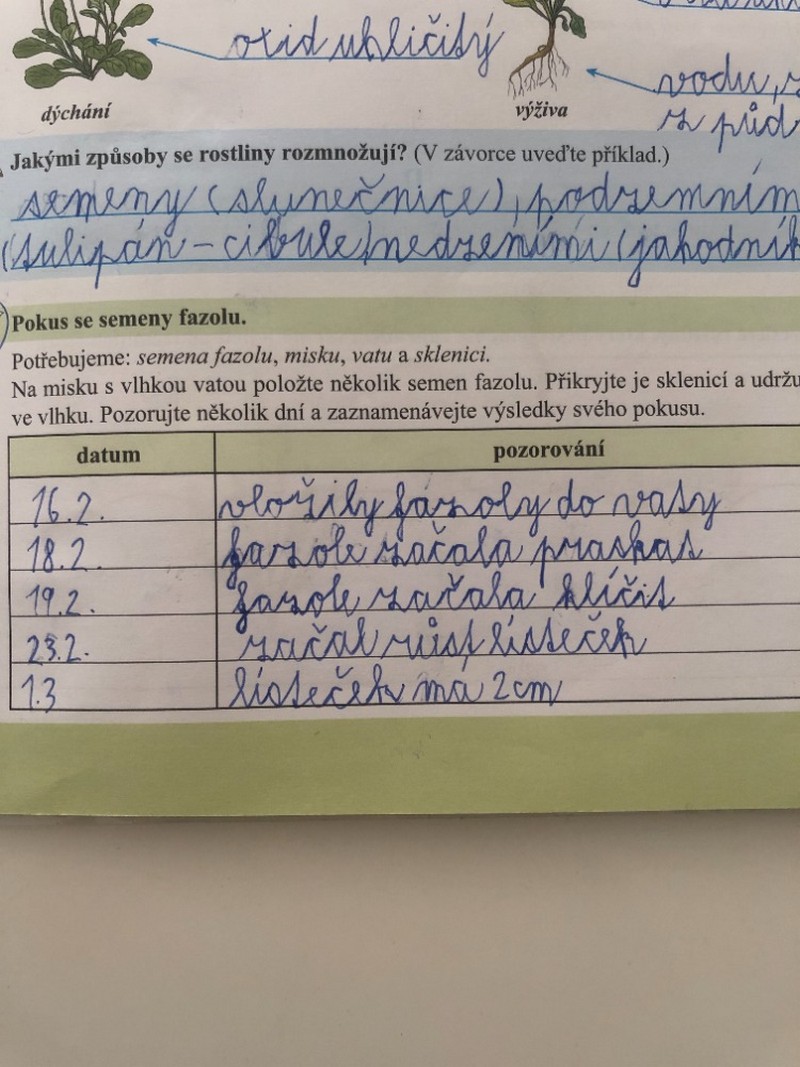 oxid uhličitý
vodu,
z půd
dýchání
výživa
Jakými způsoby se rostliny rozmnožují? (V závorce uveďte příklad.)
semeny (slunečnice), podzemním
(tulipán - cibule) nedzeními (jahodník
Pokus se semeny fazolu.
Potřebujeme: semena fazolu, misku, vatu a sklenici.
Na misku s vlhkou vatou položte několik semen fazolu. Přikryjte je sklenicí a udržu
ve vlhku. Pozorujte několik dní a zaznamenávejte výsledky svého pokusu.
datum pozorování
16.2. vložily fazoly do vaty
18.2. fazole začala praskat
19.2. fazole začala klíčit
23.2. začal růst lísteček
1.3 lísteček ma 2cm